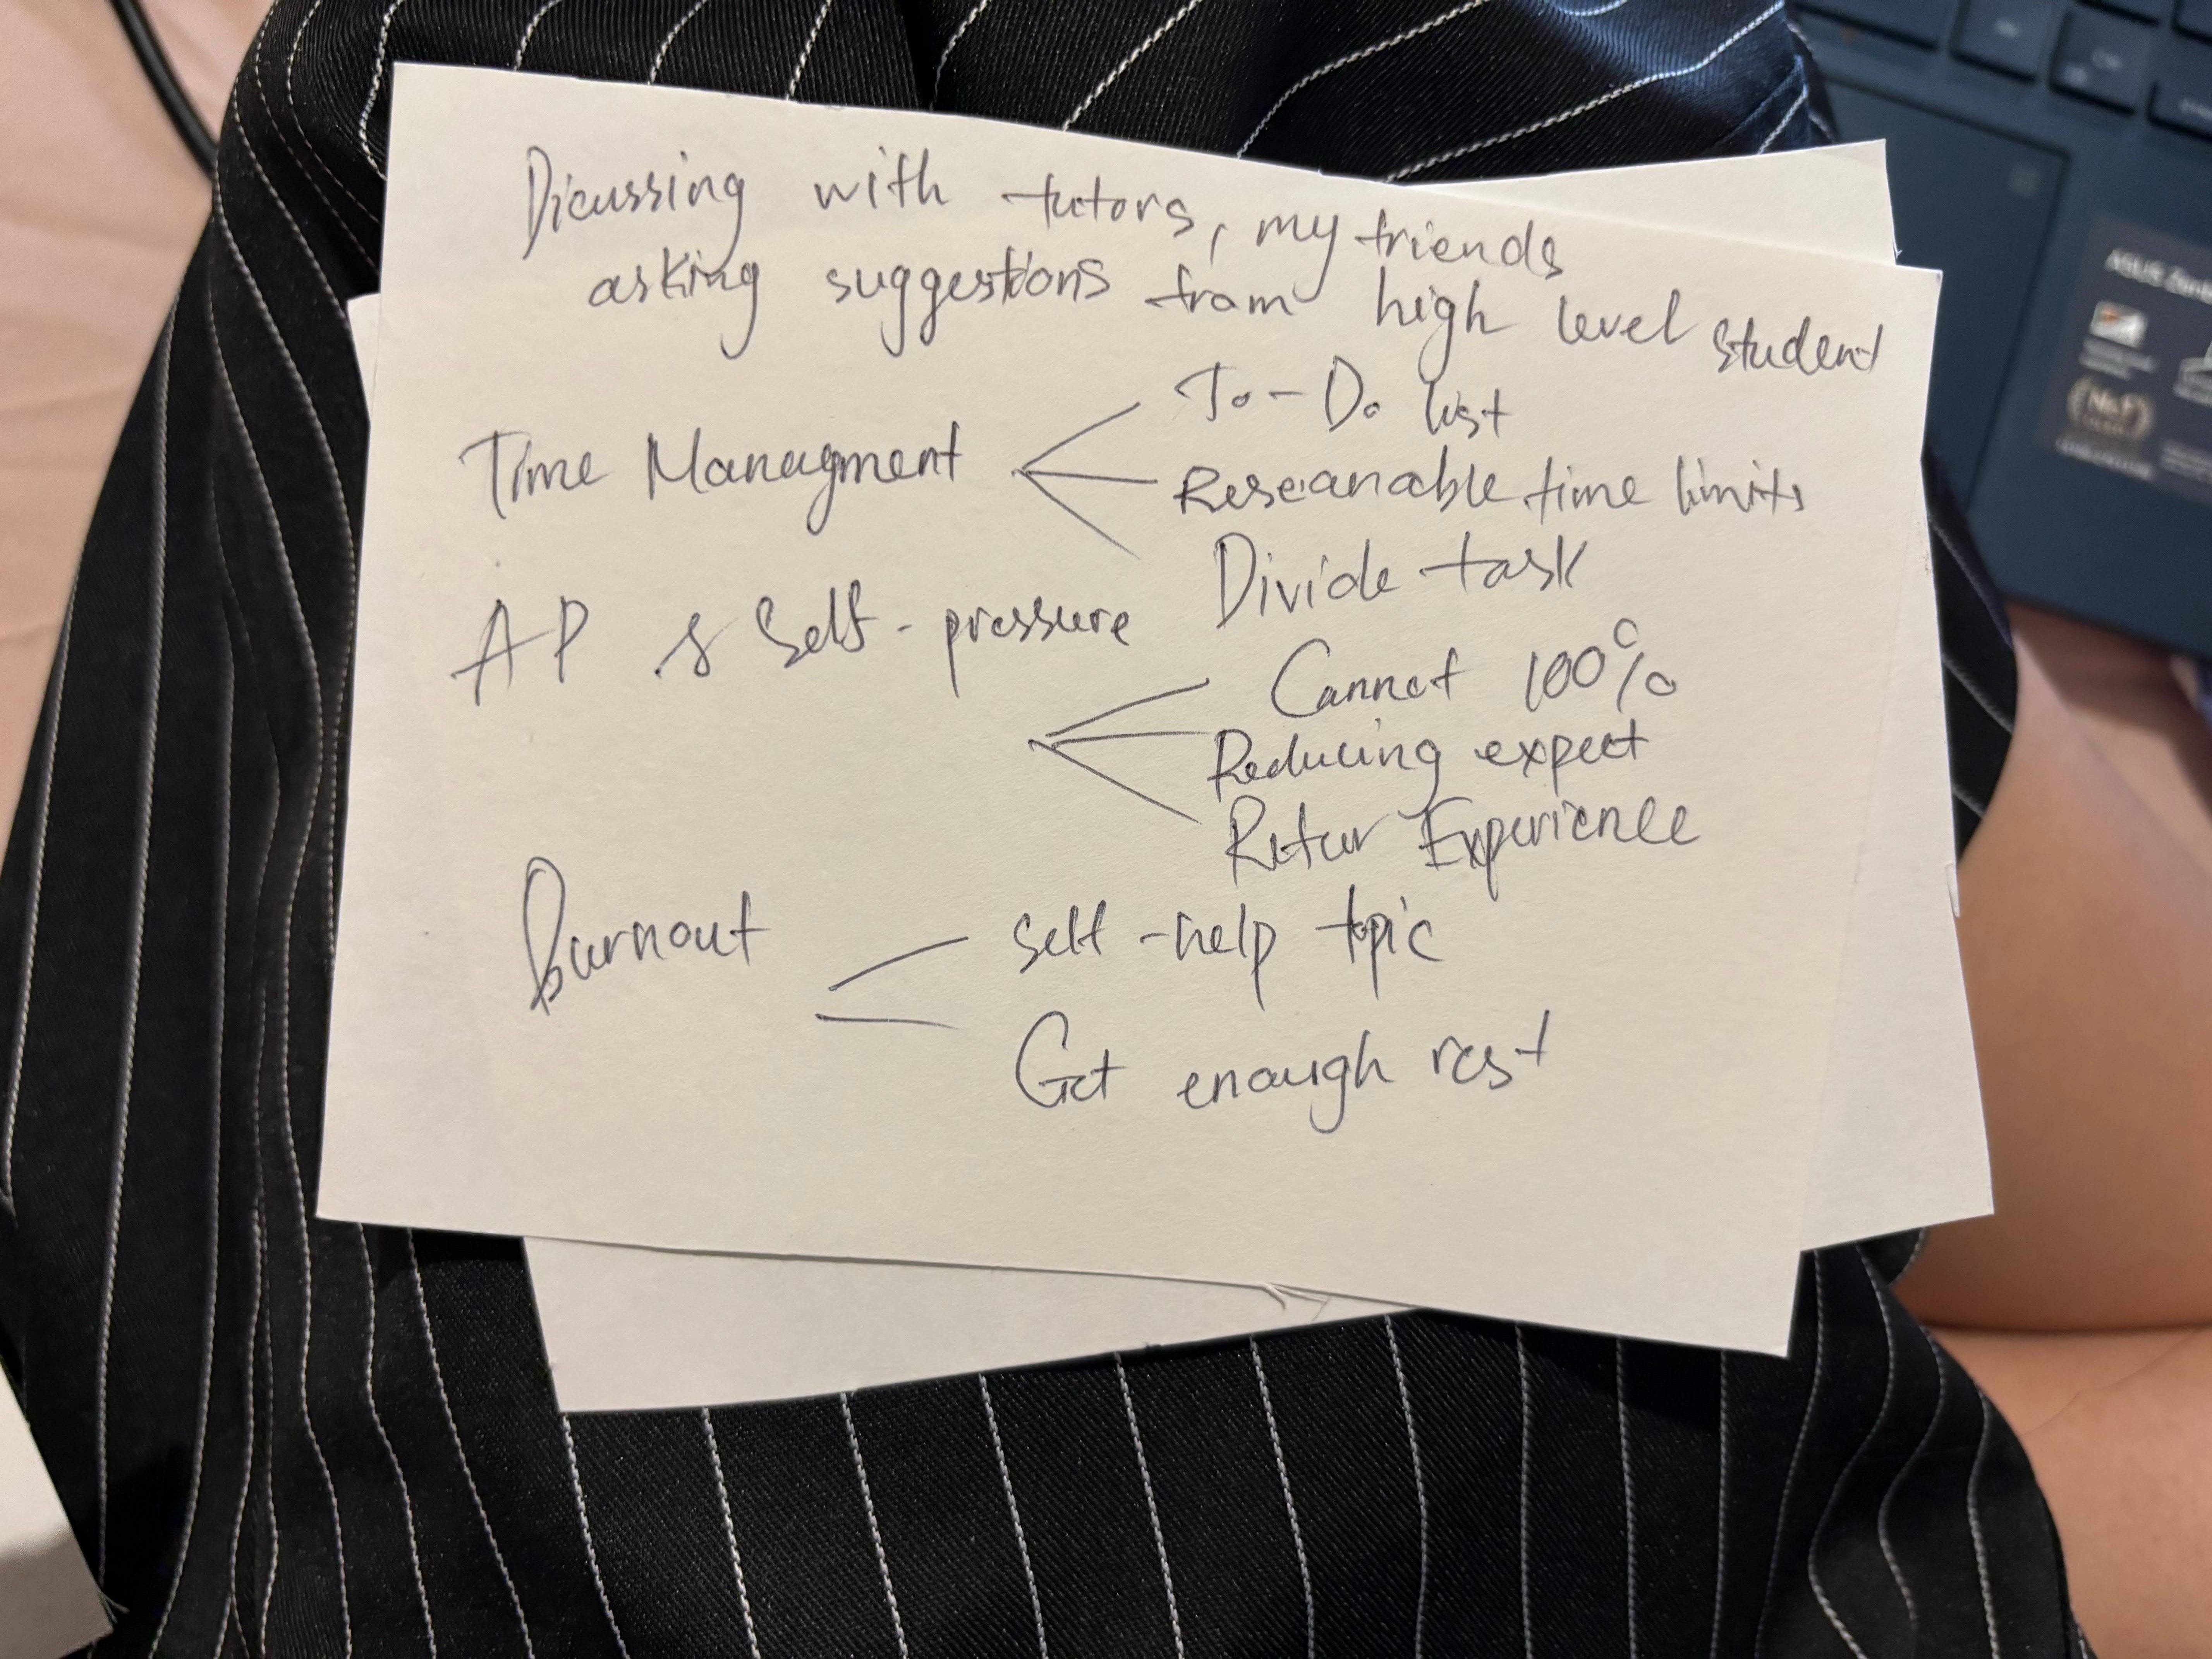 Dicussing with tutors, my friends
asking suggestions from high level student
Time Managment
To-Do list
Reseanable time limits
Divide task
AP & Self-pressure
Cannot 100%
Reducing expect
Retur Experience
Burnout
self-help topic
Get enough rest
ASUS